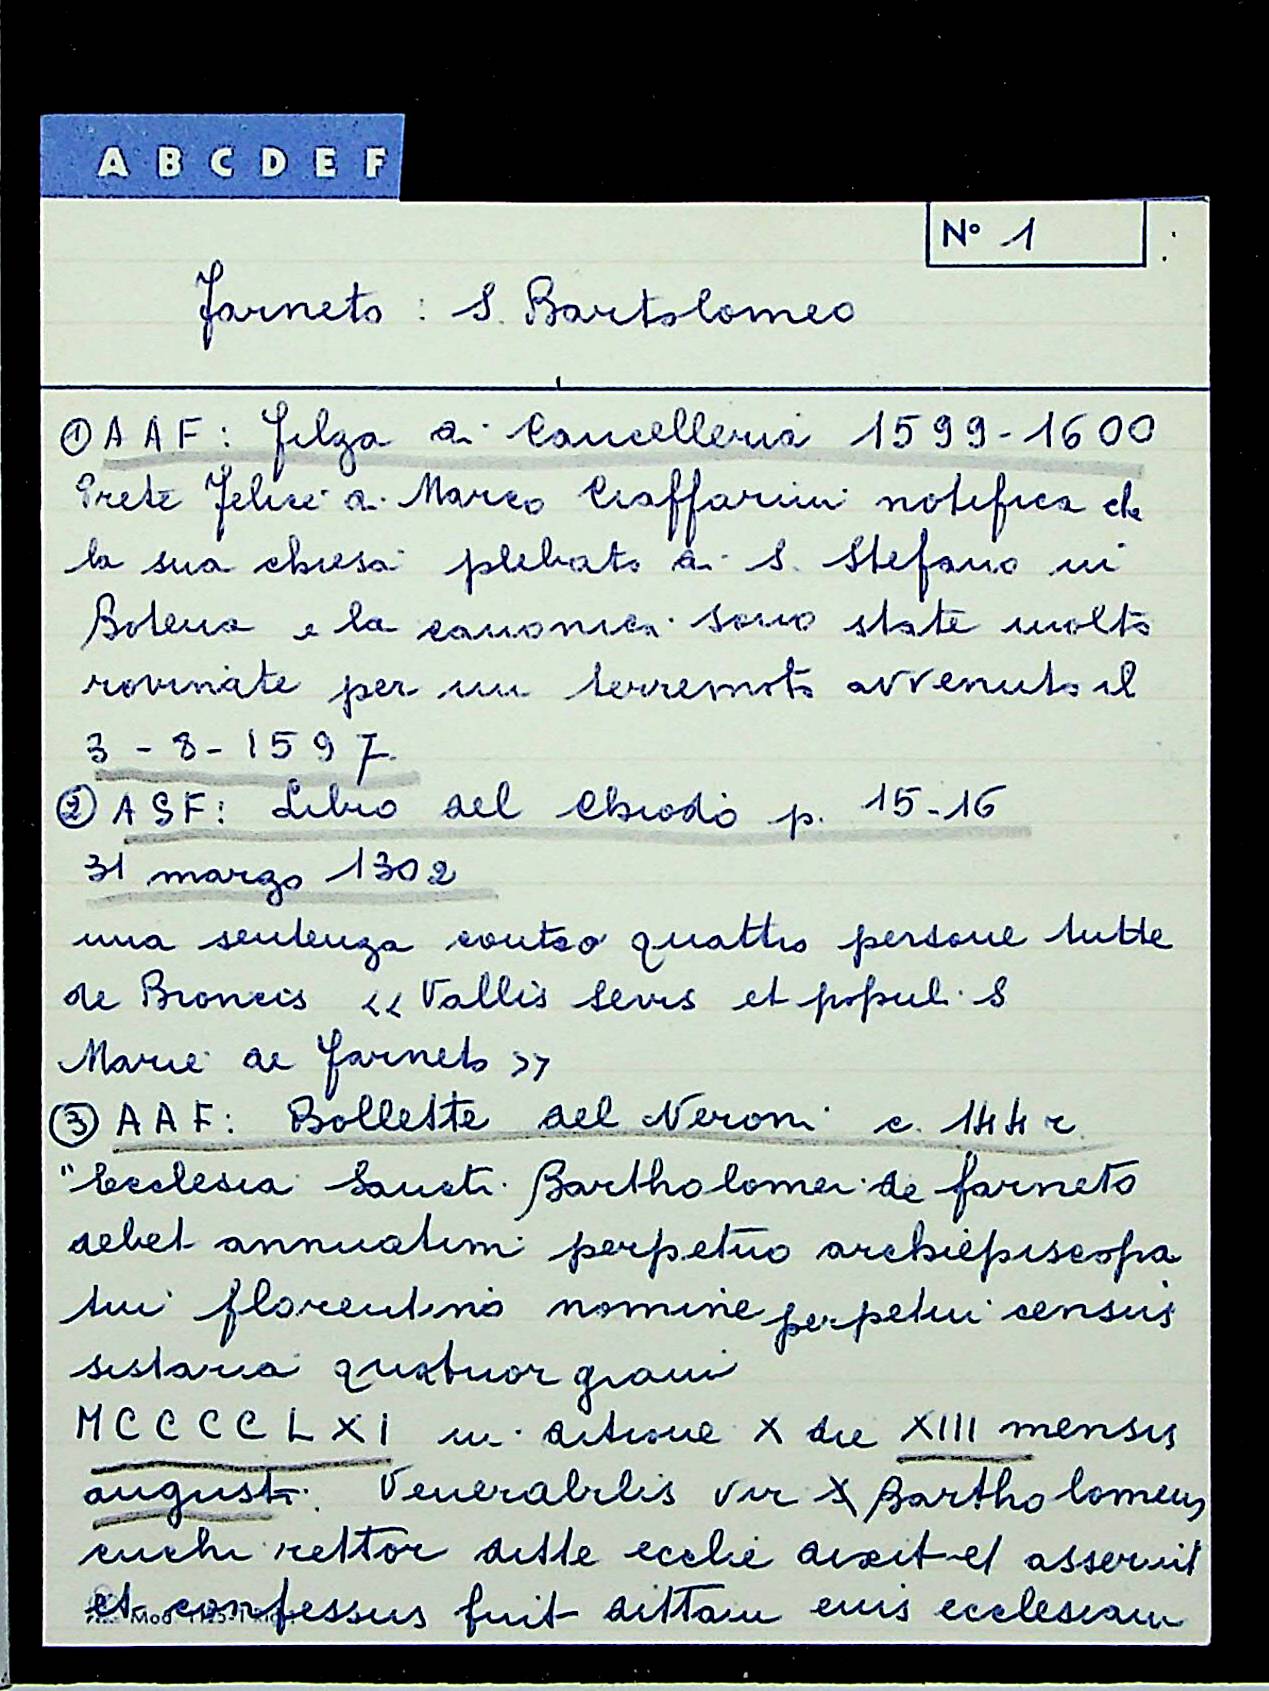 A B C D E F
N° 1
Farneto : S. Bartolomeo
① AAF: Filza di Cancelleria 1599-1600
Prete Felice di Marco Ciaffarini notifica che
la sua chiesa plebato di S. Stefano in
Botena e la canonica sono state molto
rovinate per un terremoto avvenuto il
3-8-1597.
② ASF: Libro del Chiodo p. 15-16
31 marzo 1302
una sentenza contro quattro persone tutte
de Broncis << Vallis Sevis et populi S
Marie de Farneto >>
③ AAF: Bollette del Neroni c. 144 r.
"Ecclesia Sancti Bartholomei de farneto
debet annuatim perpetuo archiepiscopa
tui florentino nomine perpetui census
sistaria quatuor grani
MCCCCLXI in ditione X die XIII mensis
augusti. Venerabilis vir X Bartholomeus
cuchi rettor ditte ecclie dixit et asseruit
et confessus fuit dittam eius ecclesiam